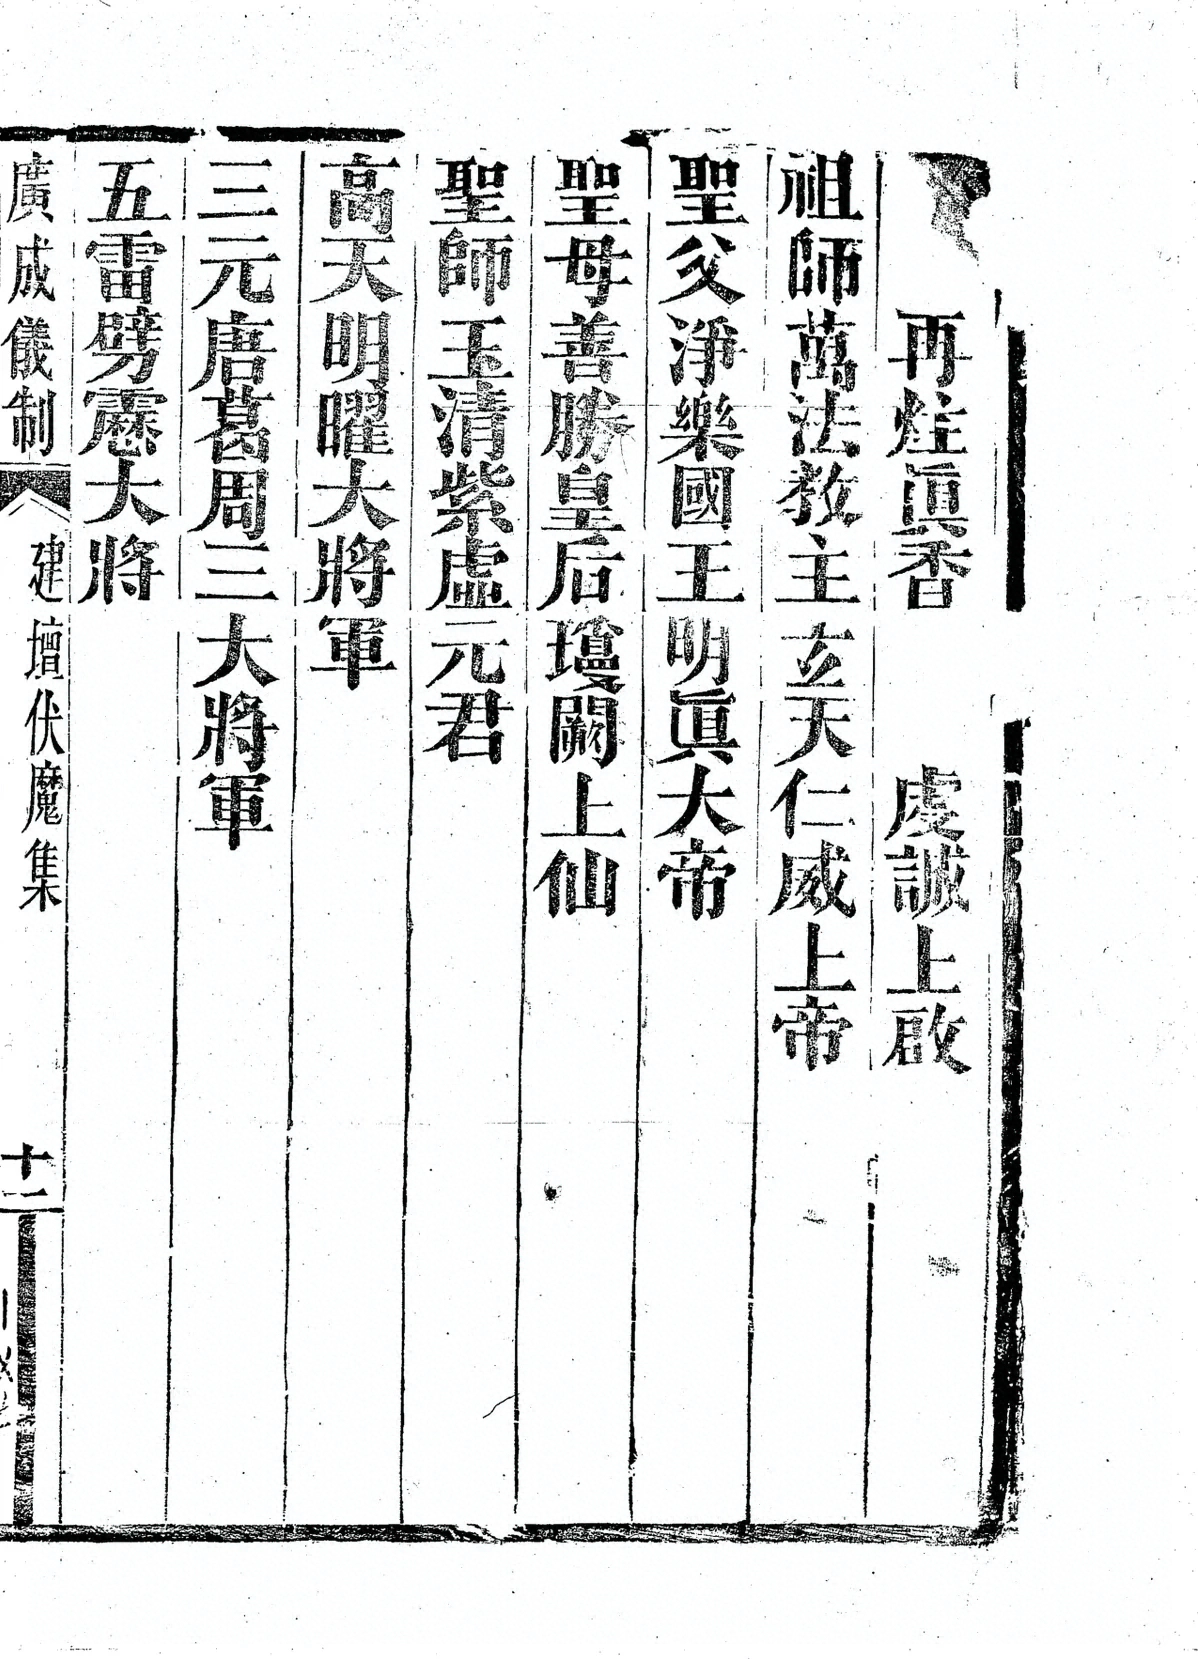 再炷眞香　虔誠上啟
祖師萬法教主玄天仁威上帝
聖父淨樂國王明眞大帝
聖母善勝皇后瓊闕上仙
聖師玉清紫虛元君
高天明曜大將軍
三元唐葛周三大將軍
五雷劈靂大將
廣成儀制　建壇伏魔集　十一